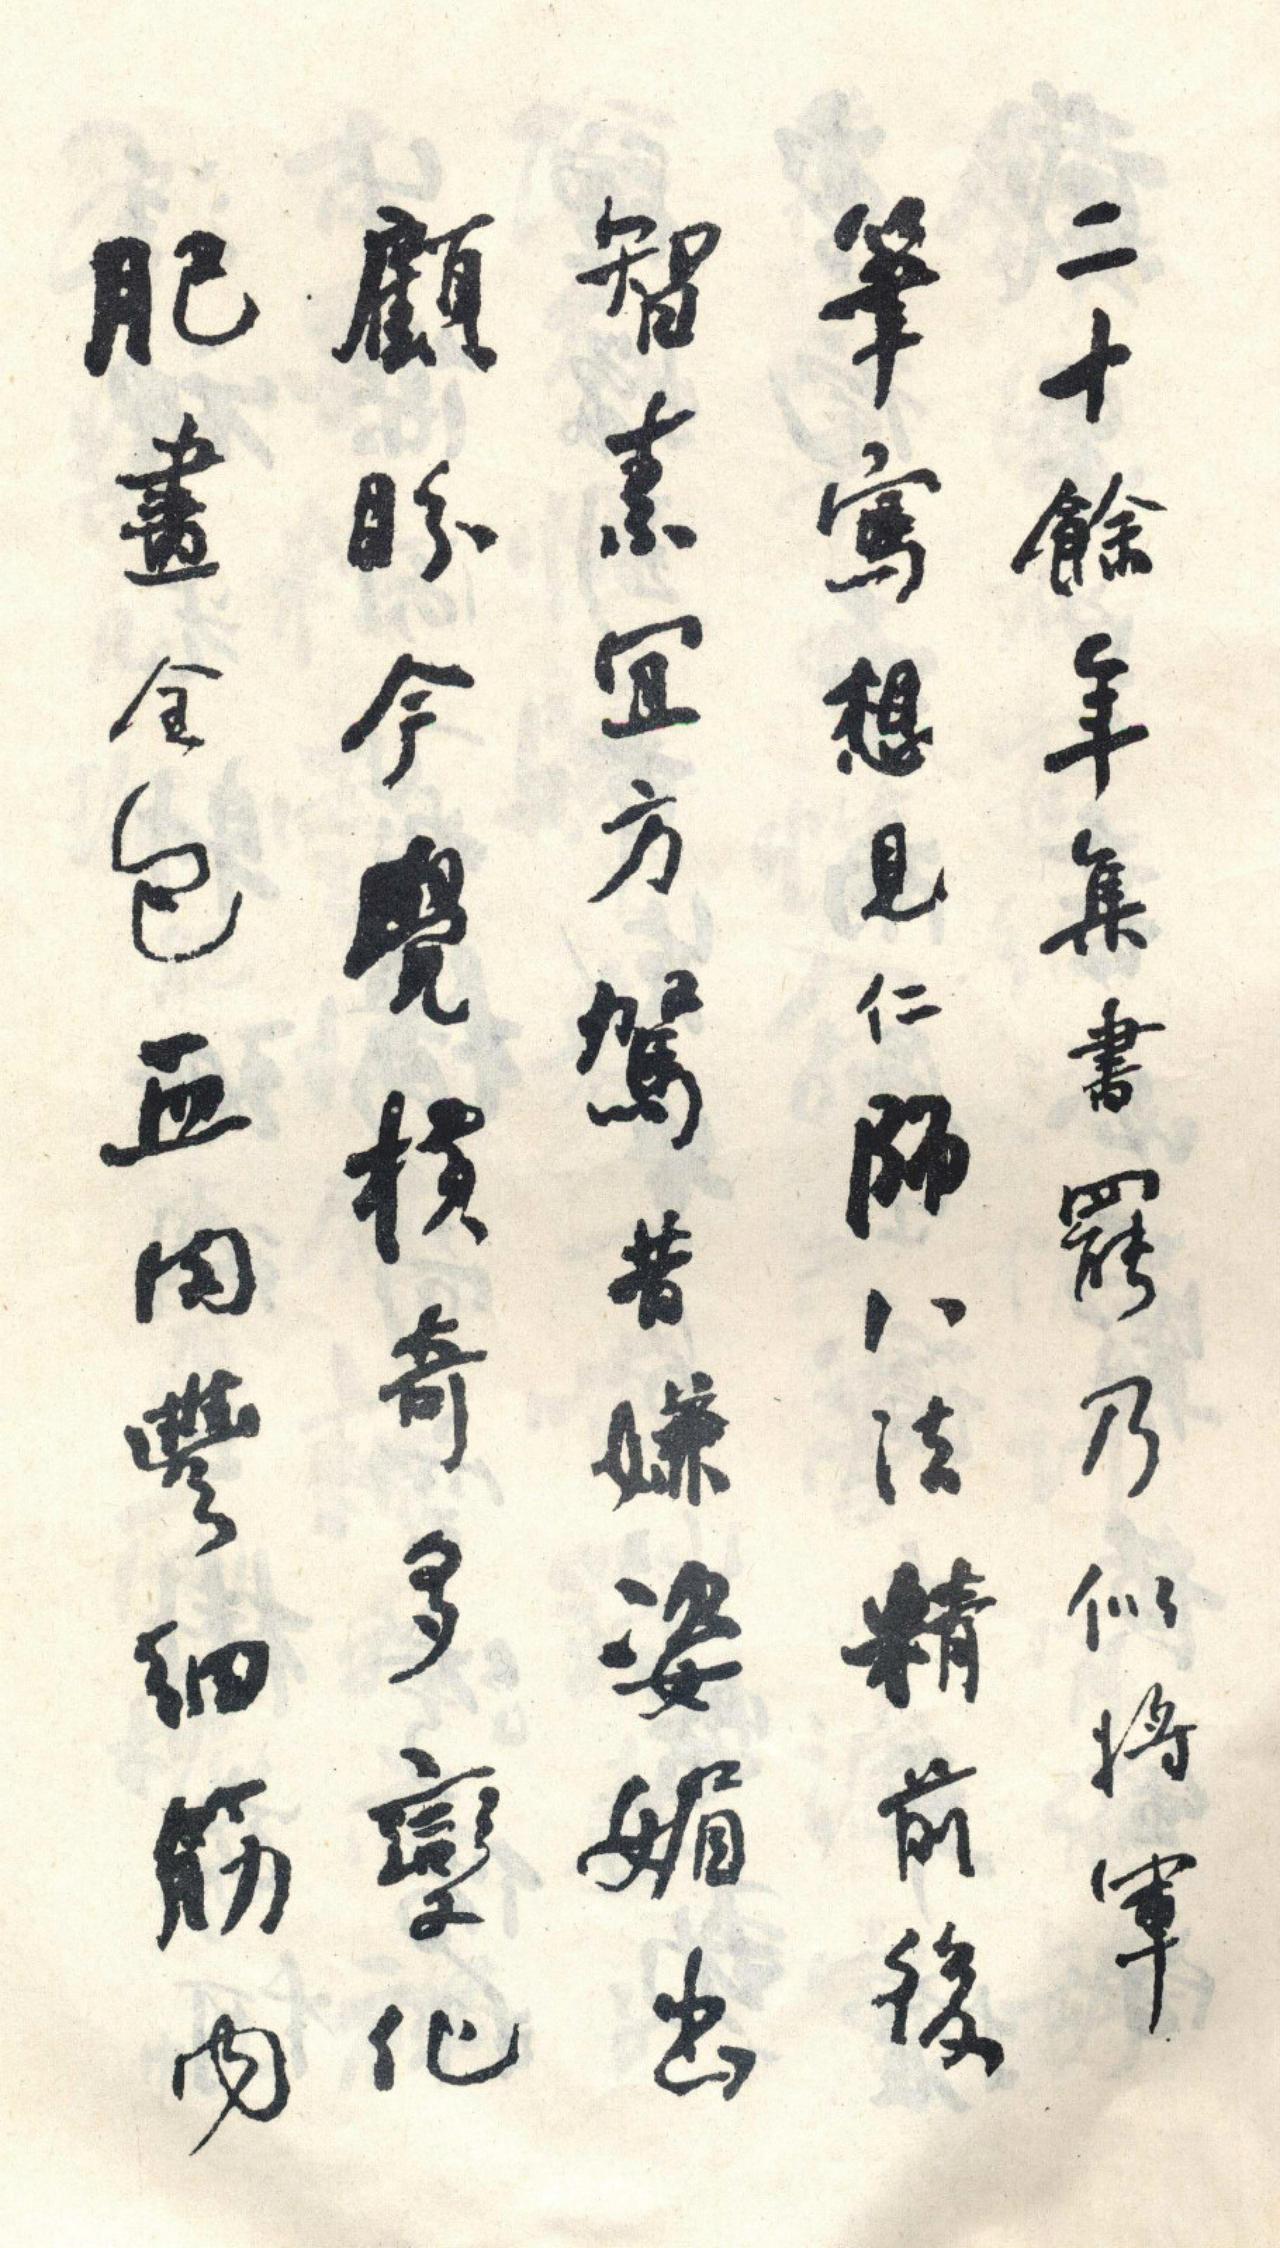 二十餘年集書罷乃似將軍
筆寫想見仁師八法精前後
智素宜方駕昔嫌姿媚出
顧盼今覺橫奇多變化
肥畫全包血肉豐細筋內